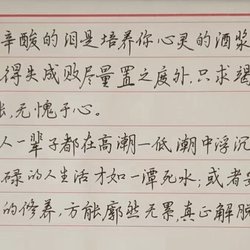 辛酸的泪是培养你心灵的酒浆
得失成败尽量置之度外,只求竭
,无愧于心。
人一辈子都在高潮—低潮中浮沉
碌的人生活才如一潭死水;或者
的修养,方能廓然无累,真正解脱